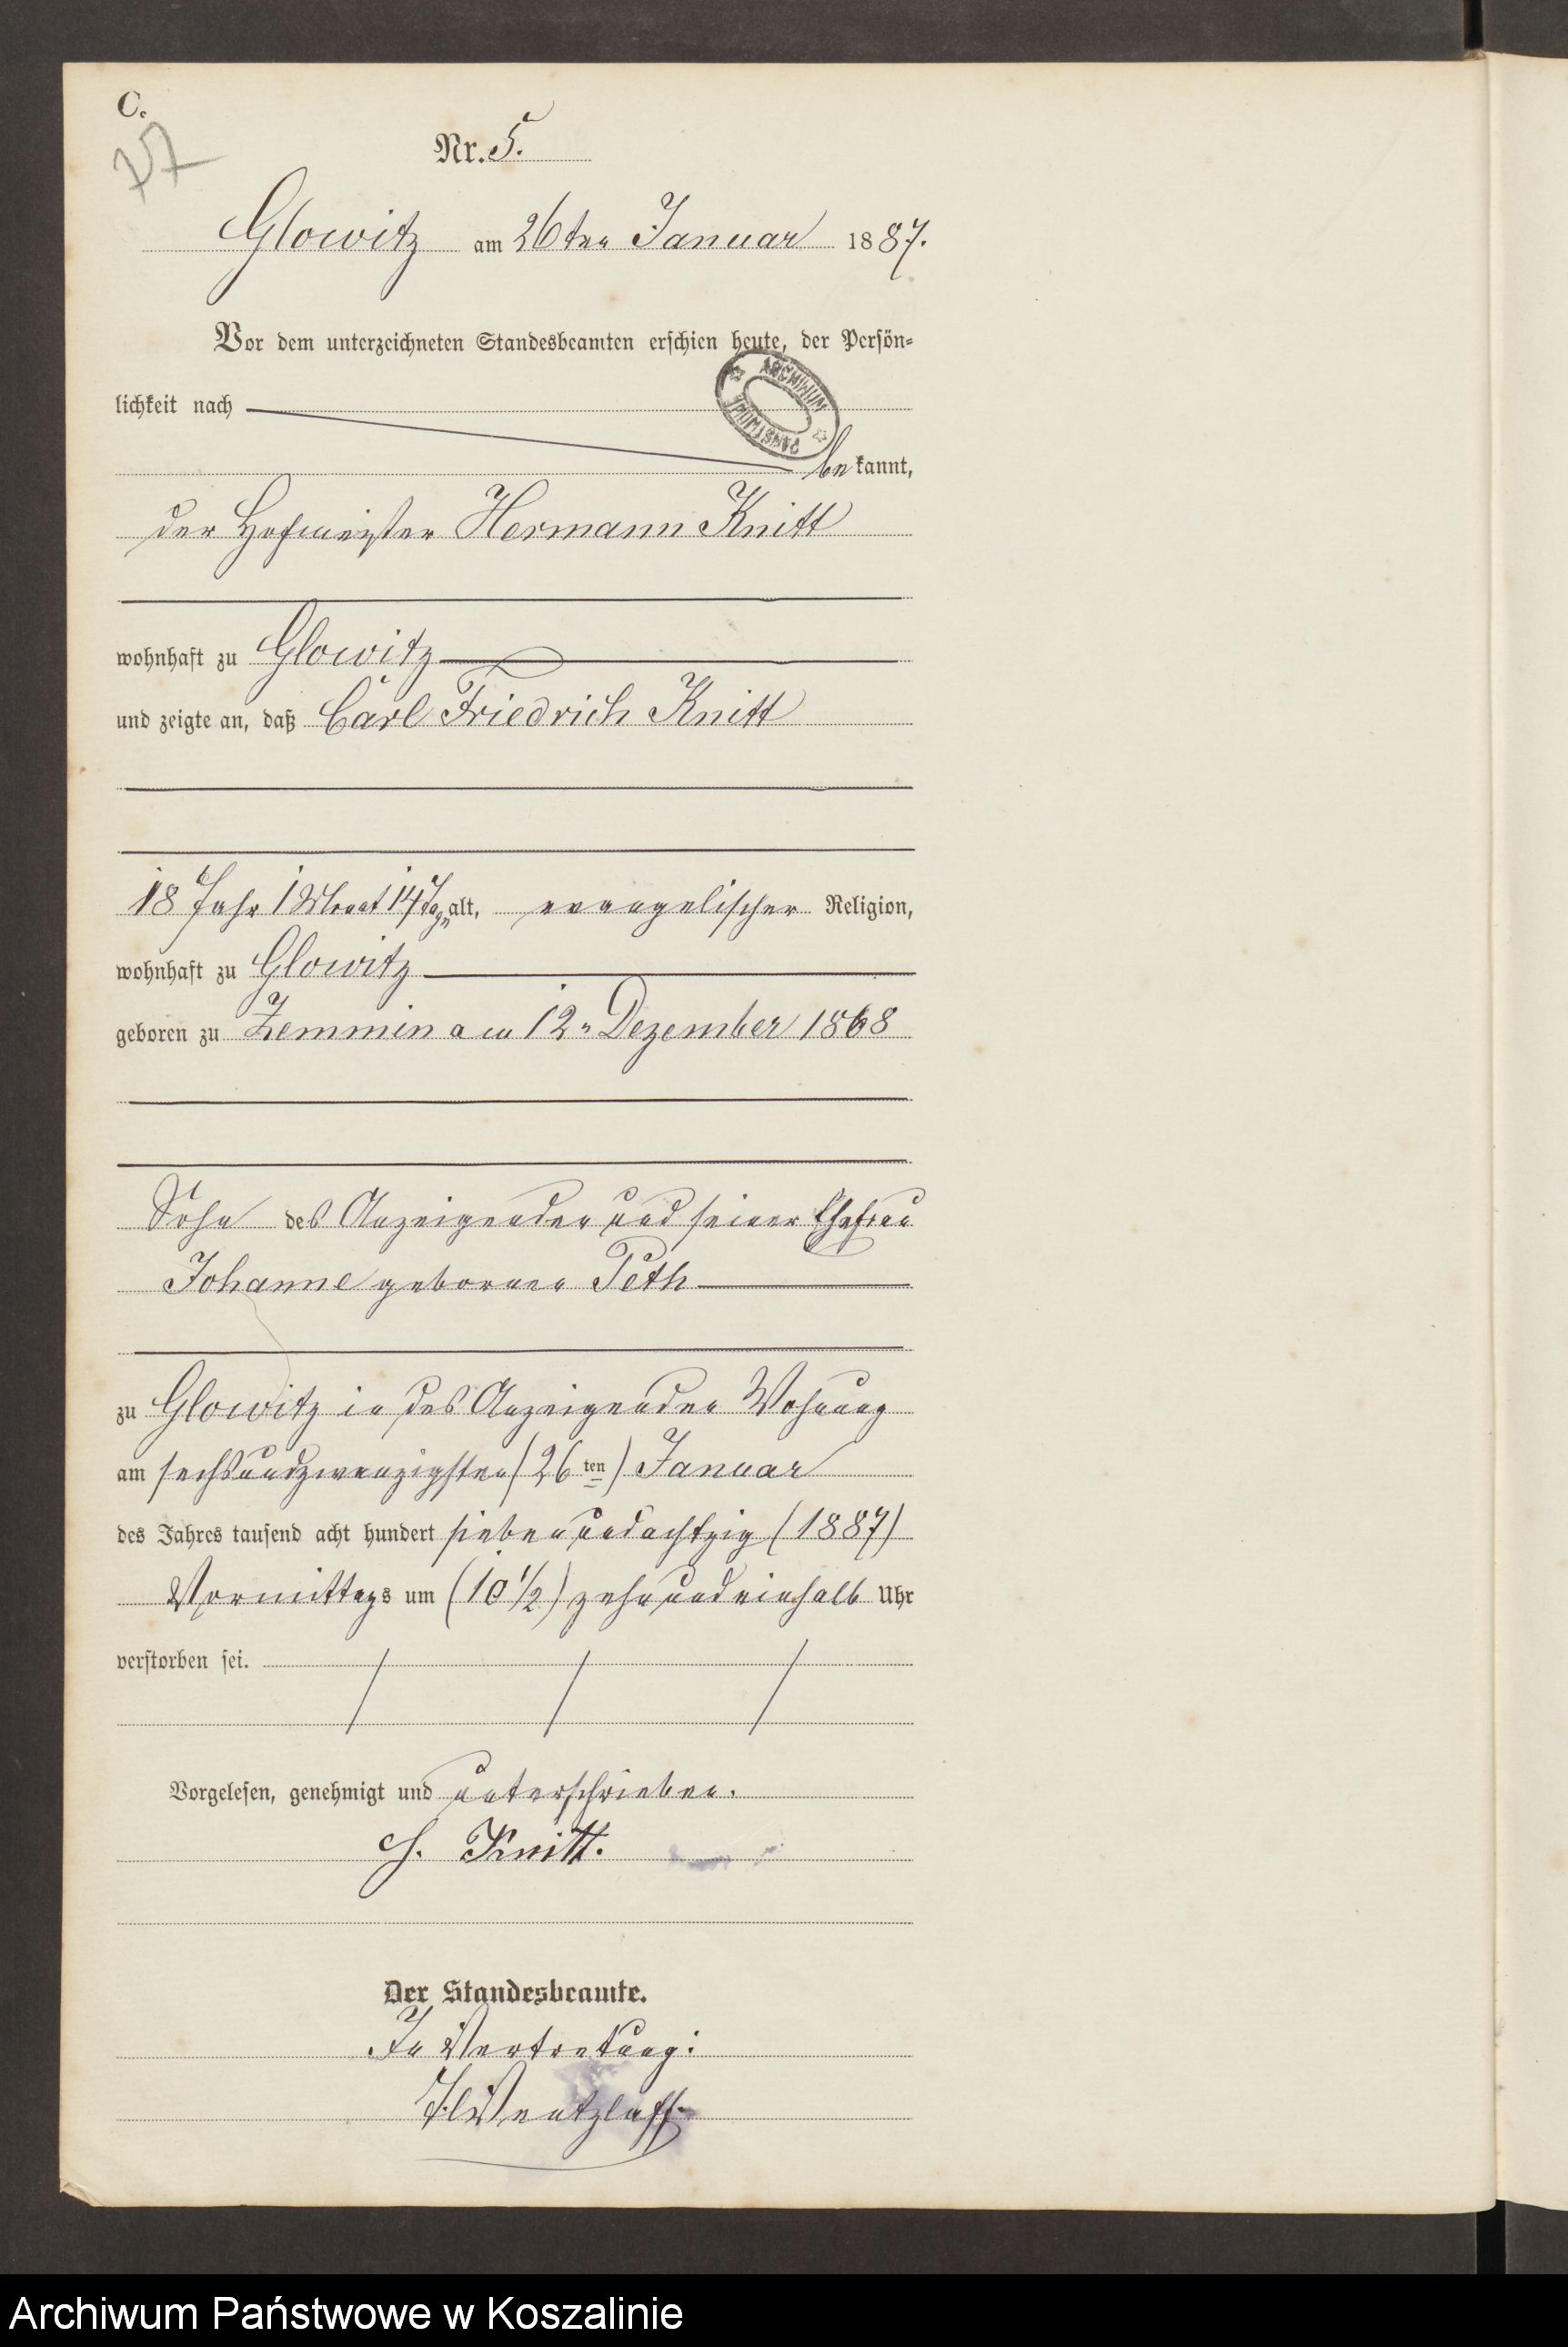 C.
Nr. 5.
Glowitz am 26ten Januar 1887.
Vor dem unterzeichneten Standesbeamten erschien heute, der Persön-
lichkeit nach
ARCHIWUM
PAŃSTWOWE
be kannt,
der Hofmeister Hermann Knitt
wohnhaft zu Glowitz
und zeigte an, daß Carl Friedrich Knitt
18 Jahr 1 Monat 14 Tage alt, evangelischer Religion,
wohnhaft zu Glowitz
geboren zu Zemmin am 12n Dezember 1868
Sohn des Anzeigenden und seiner Ehefrau
Johanne geborenen Peth
zu Glowitz in des Anzeigenden Wohnung
am sechsundzwanzigsten (26ten) Januar
des Jahres tausend acht hundert siebenundachtzig (1887)
Vormittags um (10 1/2) zehnundeinhalb Uhr
verstorben sei.
Vorgelesen, genehmigt und unterschrieben.
H. Knitt.
Der Standesbeamte.
In Vertretung:
Wentzlaff
Archiwum Państwowe w Koszalinie